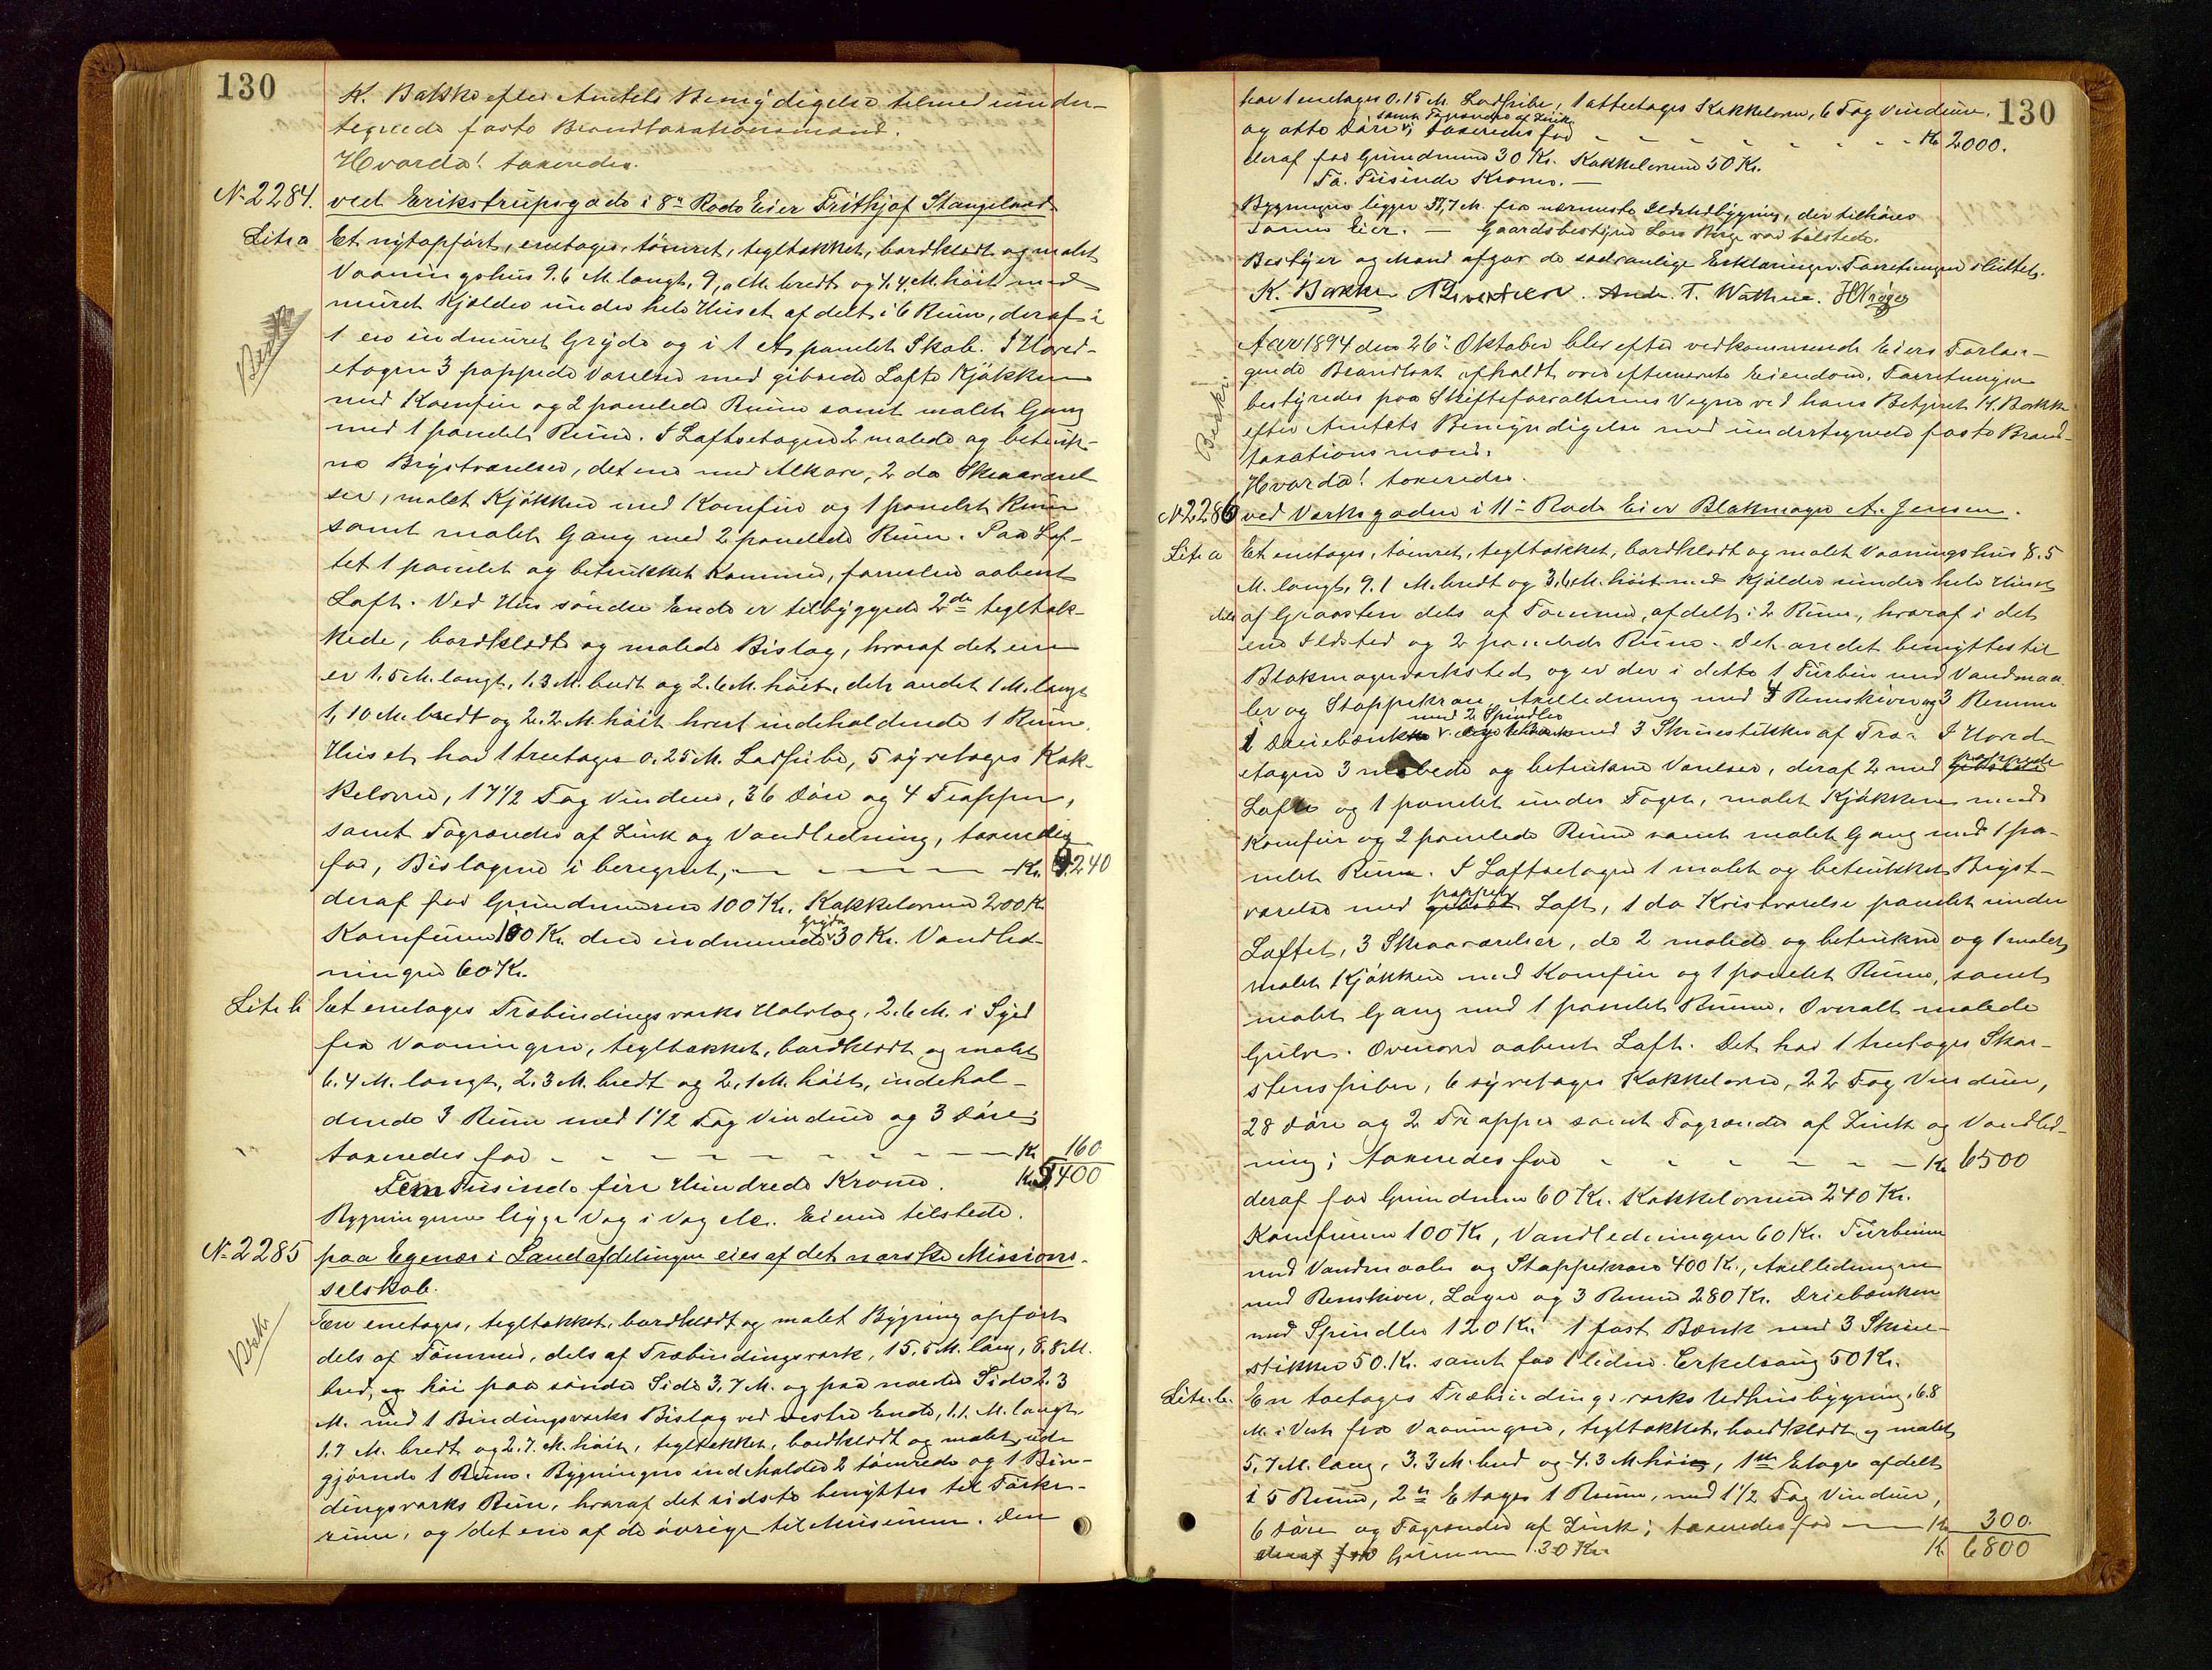 130
K. Bakke efter Amtets Bemyndigelse tilmed under-
tegnede faste Brandtaxationsmænd.
Hvorda! taxeredes.
No 2284. ved Erikstrupsgade i 8de Rode Eier Frithjof Stangeland
Litr a Et nyopført, enetages, tømret, tegltækket, bordklædt og malet
Vaaningshus 9.6 M. langt, 9, M. bredt og 4,4 M. høit med
muret Kjælder under hele Huset afdelt i 6 Rum, deraf i
1 en indmuret Gryde og i 1 et panelet Skab. I Hoved-
etagen 3 pappede Værelser med gibsede Lofte Kjøkken
med Komfur og 2 panelede Rum samt malet Gang
med 1 panelet Rum. I Loftsetagen 2 malede og betruk-
ne Brystværelser, det ene med Alkove, 2 do Skraaværel-
ser, malet Kjøkken med Komfur og 1 panelet Rum
samt malet Gang med 2 panelede Rum. Paa Lof-
tet 1 panelet og betrukket Kammer, forresten aabent
Loft. Ved Hus søndre Ende er tilbyggede 2de tegltæk-
kede, bordklædte og malede Bislag, hvoraf det ene
er 1.5 M. langt, 1.3 M. bredt og 2.6 M. høit, det andet 1 M. langt
1,10 M. bredt og 2.2 M. høit hvert indeholdende 1 Rum.
Huset har 1 treetages 0.25 M. Ladpibe, 5 syvetages Kak-
kelovne, 17 1/2 Fag Vinduer, 36 Døre og 4 Trapper,
samt Tagrender af Zink og Vandledning, taxeredes
for, Bislagene i beregnet, Kr. 9.240
deraf for Grundmuren 100 Kr. Kakkelovnene 200 Kr
Komfurene 100 Kr. den indmurede Gryde 30 Kr. Vandled-
ningen 60 Kr.
Litr b Et enetages Træbindingsværks Halvtag, 2.6 M. i Syd
fra Vaaningen, tegltækket, bordklædt og malet
6.4 M. langt, 2.3 M. bredt og 2,1 M. høit, indehol-
dende 3 Rum med 1 1/2 Fag Vinduer og 3 Døre
taxeredes for Kr 160
Tusinde fire Hundrede Kroner. Kr 9400
Bygningerne ligge Væg i Væg etc. Eieren tilstede.
No 2285 paa Egenæs i Landafdelingen eies af det norske Missions-
selskab.
En enetages, tegltækket, bordklædt og malet Bygning opført
dels af Tømmer, dels af Træbindingsværk, 15.5 M. lang, 8.8 M.
bred, og høi paa søndre Side 3,7 M. og paa nordre Side 2.3
M. med 1 Bindingsværks Bislag ved vestre Ende, 1.1. M. langt
1.7 M. bredt og 2.7. M. høit, tegltækket, bordklædt og malet, ud-
gjørende 1 Rum. Bygningen indeholder 2 tømrede og 1 Bin-
dingsværks Rum, hvoraf det sidste benyttes til Tørke-
rum, og det ene af de øvrige til Museum. Den
130
har 1 enetages 0.15 M. Ladpibe, 1 ottetages Kakkelovn, 6 Fag Vinduer,
og otte Døre samt Tagrender af Zink; taxeredes for Kr 2000.
deraf for Grundmur 30 Kr. Kakkelovnen 50 Kr.
To Tusinde Kroner. —
Bygningen ligger 31,7 M. fra nærmeste Ildstedbygning, der tilhører
samme Eier. — Gaardsbestyrer Lars Berge var tilstede.
Bestyrer og Mænd afgav de sædvanlige Erklæringer. Forretningen sluttet.
K. Bakke Andr. T. Wathne.
Aar 1894 den 26de Oktober blev efter vedkommende Eiers Forlan-
gende Brandtaxt afholdt over efternævnte Eiendom. Forretningen
bestyredes paa Skifteforvalterens Vegne ved hans Betjent K. Bakke
efter Amtets Bemyndigelse med undertegnede faste Brand-
taxationsmænd.
Hvorda! taxeredes.
No 2286 ved Værksgaden i 11te Rode Eier Blokmager A. Jensen.
Litr a Et enetages, tømret, tegltækket, bordklædt og malet Vaaningshus 8.5
M. langt, 9.1 M. bredt og 3.6 M. høit med Kjælder under hele Huset
dels af Graasten dels af Tømmer, afdelt i 2 Rum, hvoraf i det
ene Ildsted og 2 panelede Rum. Det andet benyttes til
Blokmagerværksted og er der i dette 1 Turbin med Vandmaa-
ler og Stoppekran, Axelledning med 4 Remskiver og 3 Remme
1 Dreiebænk med 2 Spindler med 3 Skruestikker af Træ. I Hoved-
etagen 3 malede og betrukne Værelser, deraf 2 med pappede
Lofte og 1 panelet under Taget, malet Kjøkken med
Komfur og 2 panelede Rum samt malet Gang med 1 pa-
nelet Rum. I Loftsetagen 1 malet og betrukket Bryst-
værelse med pappet Loft, 1 do Kvistværelse panelet under
Loftet, 3 Skraaværelser, de 2 malede og betrukne og 1 malet,
malet Kjøkken med Komfur og 1 panelet Rum, samt
malet Gang med 1 panelet Rum. Overalt malede
Gulve. Ovenover aabent Loft. Det har 1 treetages Skor-
stenspiber, 6 syvetages Kakkelovne, 22 Fag Vinduer,
28 Døre og 2 Trapper samt Tagrender af Zink og Vandled-
ning; taxeredes for Kr 6500
deraf for Grundmur 60 Kr. Kakkelovnene 240 Kr.
Komfurene 100 Kr, Vandledningen 60 Kr. Turbinen
med Vandmaaler og Stoppekran 400 Kr., Axelledningen
med Remskiver, Lager og 3 Remme 280 Kr. Dreiebænken
med Spindler 120 Kr. 1 fast Bænk med 3 Skrue-
stikker 50. Kr. samt for 1 liden Cirkelsaug 50 Kr.
Litr. b. En toetages Træbindingsværks Udhusbygning, 6.8
M. i Vest fra Vaaningen, tegltækket, bordklædt og malet
5,7 M. lang, 3.3 M. bred og 4.3 M. høi, 1ste Etage afdelt
i 5 Rum, 2den Etages 1 Rum, med 1 1/2 Fag Vinduer,
6 Døre og Tagrender af Zink; taxeredes for Kr 300.
deraf for Grundmur 30 Kr. Kr 6800